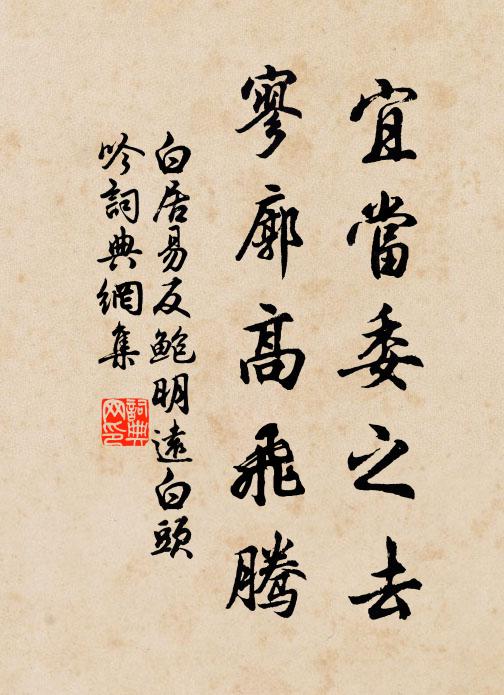 宜當委之去
寥廓高飛騰
白居易反鮑明遠白頭
吟詞典網集
詞典
网印